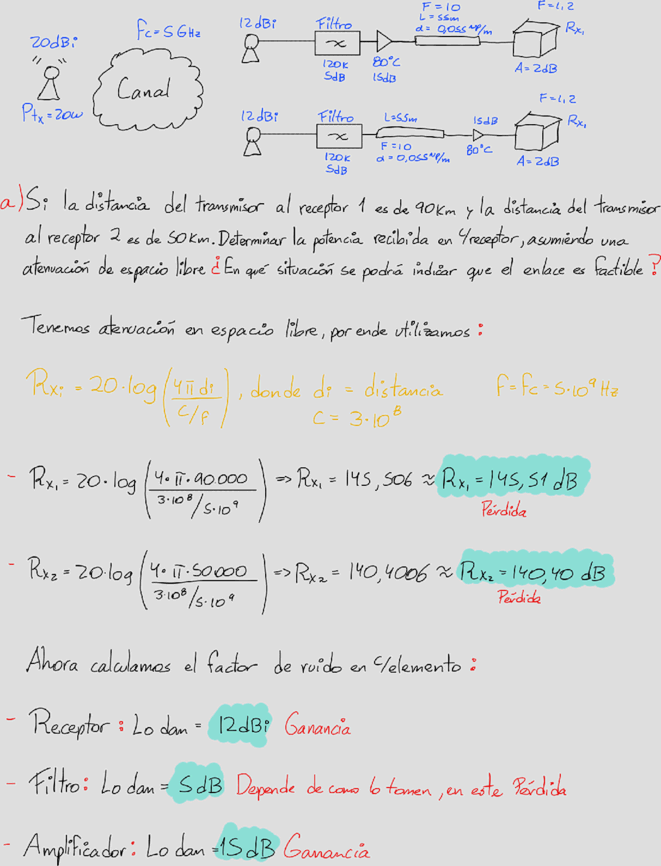 20dBi
fc=5GHz
Canal
Ptx=20w
12dBi
Filtro
120K
5dB
80°C
15dB
F=10
L=55m
α=0,055 Np/m
F=1,2
Rx₁
A=2dB
12dBi
Filtro
120K
5dB
L=55m
F=10
α=0,055 Np/m
15dB
80°C
F=1,2
Rx₁
A=2dB
a) Si la distancia del transmisor al receptor 1 es de 90km y la distancia del transmisor
al receptor 2 es de 50km. Determinar la potencia recibida en c/receptor, asumiendo una
atenuación de espacio libre ¿En qué situación se podrá indicar que el enlace es factible?
Tenemos atenuación en espacio libre, por ende utilizamos:
Rxi = 20·log(4πdi / c/f), donde di = distancia f=fc=5·10⁹ Hz
C = 3·10⁸
- Rx₁ = 20·log(4·π·90000 / 3·10⁸/5·10⁹) ⇒ Rx₁ = 145,506 ≈ Rx₁ = 145,51 dB
Pérdida
- Rx₂ = 20·log(4·π·50000 / 3·10⁸/5·10⁹) ⇒ Rx₂ = 140,4006 ≈ Rx₂ = 140,40 dB
Pérdida
Ahora calculamos el factor de ruido en c/elemento:
- Receptor: Lo dan = 12dBi Ganancia
- Filtro: Lo dan = 5dB Depende de como lo tomen, en este Pérdida
- Amplificador: Lo dan = 15dB Ganancia